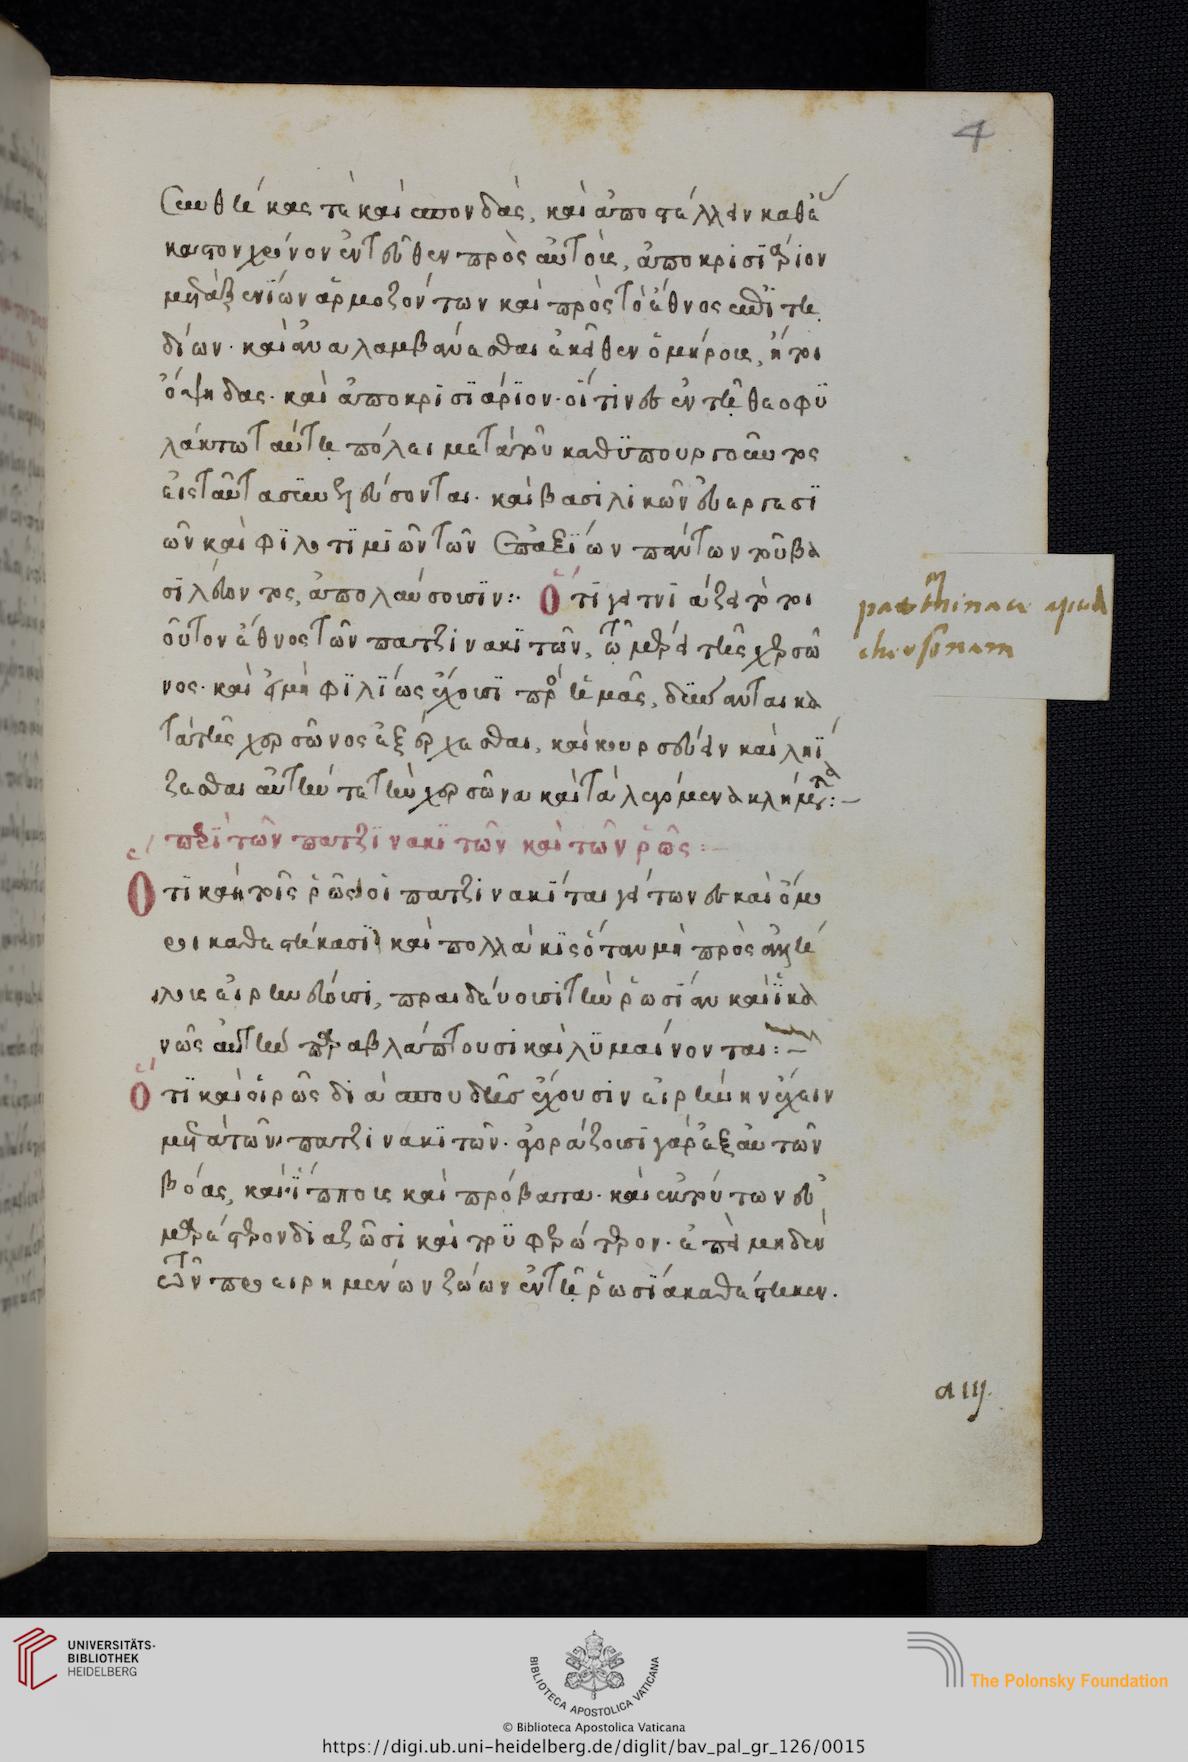 4
συνθήκας τὲ καὶ σπονδὰς, καὶ ἀποστέλλειν καθέ
καστον χρόνον ἐντεῦθεν πρὸς αὐτοὺς, ἀποκρισϊάριον
μετὰ ξενΐων ἁρμοζόντων καὶ πρὸς τὸ ἔθνος ἐπϊτη
δίων· καὶ ἀναλαμβάνεσθαι ἐκεῖθεν ὁμήρους, ἤτοι
ὄψηδας· καὶ ἀποκρισϊάρϊον· οἵτινες ἐν τῆ θεοφϋ
λάκτω ταύτη πόλει μετὰ τοῦ καθϋπουργοῦντος
εἰς ταῦτα συνελεύσονται· καὶ βασιλικῶν εὐεργεσϊ
ῶν καὶ φϊλοτϊμϊῶν τῶν ἐπαξΐων πάντων τοῦ βα
σϊλεύοντος, ἀπολαύσουσϊν:· Ὅτϊ γειτνϊάζει τὸ τοι
οῦτον ἔθνος τῶν πατζινακϊτῶν, τῶ μέρει τῆς χερσῶ
νος· καὶ εἰ μὴ φϊλΐως ἔχουσϊ πρὸς ἡμᾶς, δύνανται κα
τὰ τῆς χερσῶνος ἐξέρχεσθαι, καὶ κουρσεύειν καὶ ληΐ
ζεσθαι αὐτήν τε τὴν χερσῶνα καὶ τὰ λεγόμενα κλήματα:—
περϊ τῶν πατζϊνακϊτῶν καὶ τῶν ῥῶς:—
Ὅτϊ καὶ τοῖς ῥῶς οἱ πατζινακΐται γείτονες καὶ ὅμο
ροι καθεστήκασϊ καὶ πολλάκϊς ὅταν μὴ πρὸς ἀλλή
λους εἰρηνεύουσι, πραιδεύουσι τὴν ῥωσίαν καὶ ἱκα
νῶς αὐτὴν παραβλάπτουσι καὶ λϋμαίνονται:—
Ὅτϊ καὶ οἱ ρῶς διὰ σπουδῆς ἔχουσιν εἰρήνην ἔχειν
μετὰ τῶν πατζινακϊτῶν· ἀγοράζουσϊ γὰρ ἐξ αὐτῶν
βόας, καὶ ἵππους καὶ πρόβατα· καὶ ἐκ τούτων εὐ
μαρέστερον διαζῶσι καὶ τρϋφερώτερον· ἐπεὶ μηδὲν
τῶν προειρημένων ζώων ἐν τῆ ῥωσΐα καθέστηκεν.
chersonam
a iij.
UNIVERSITÄTS-
BIBLIOTHEK
HEIDELBERG
BIBLIOTECA APOSTOLICA VATICANA
The Polonsky Foundation
© Biblioteca Apostolica Vaticana
https://digi.ub.uni-heidelberg.de/diglit/bav_pal_gr_126/0015